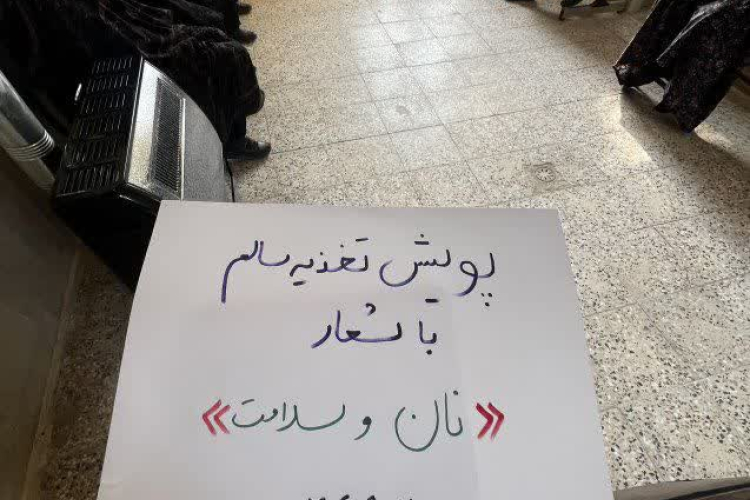 پویش تغذیه سالم
با شعار
«نان و سلامت»